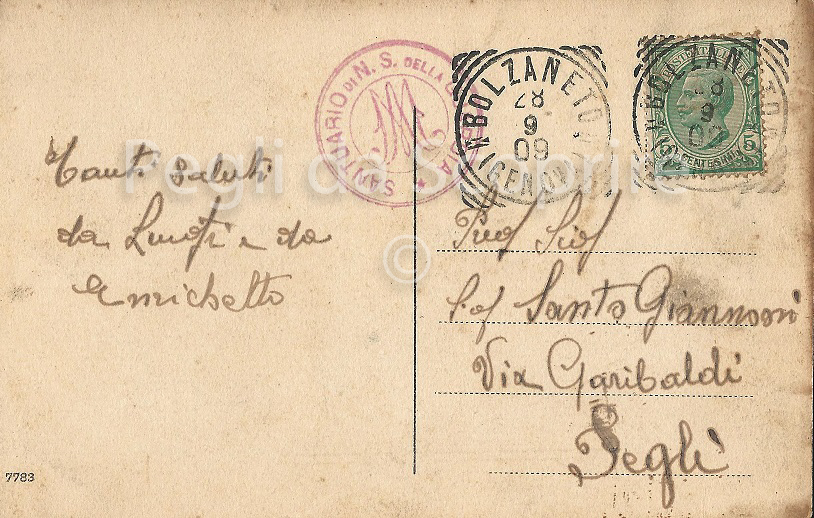 SANTUARIO DI N. S. DELLA GUARDIA
BOLZANETO
(GENOVA)
28
9
09
BOLZANETO
28
9
09
POSTE ITALIANE
5
CENTESIMI
5
Tanti saluti
da Luigi e da
Enrichetto
Preg Sig
Sig Santo Giannoni
Via Garibaldi
Pegli
7783
Pegli da Scoprire
©